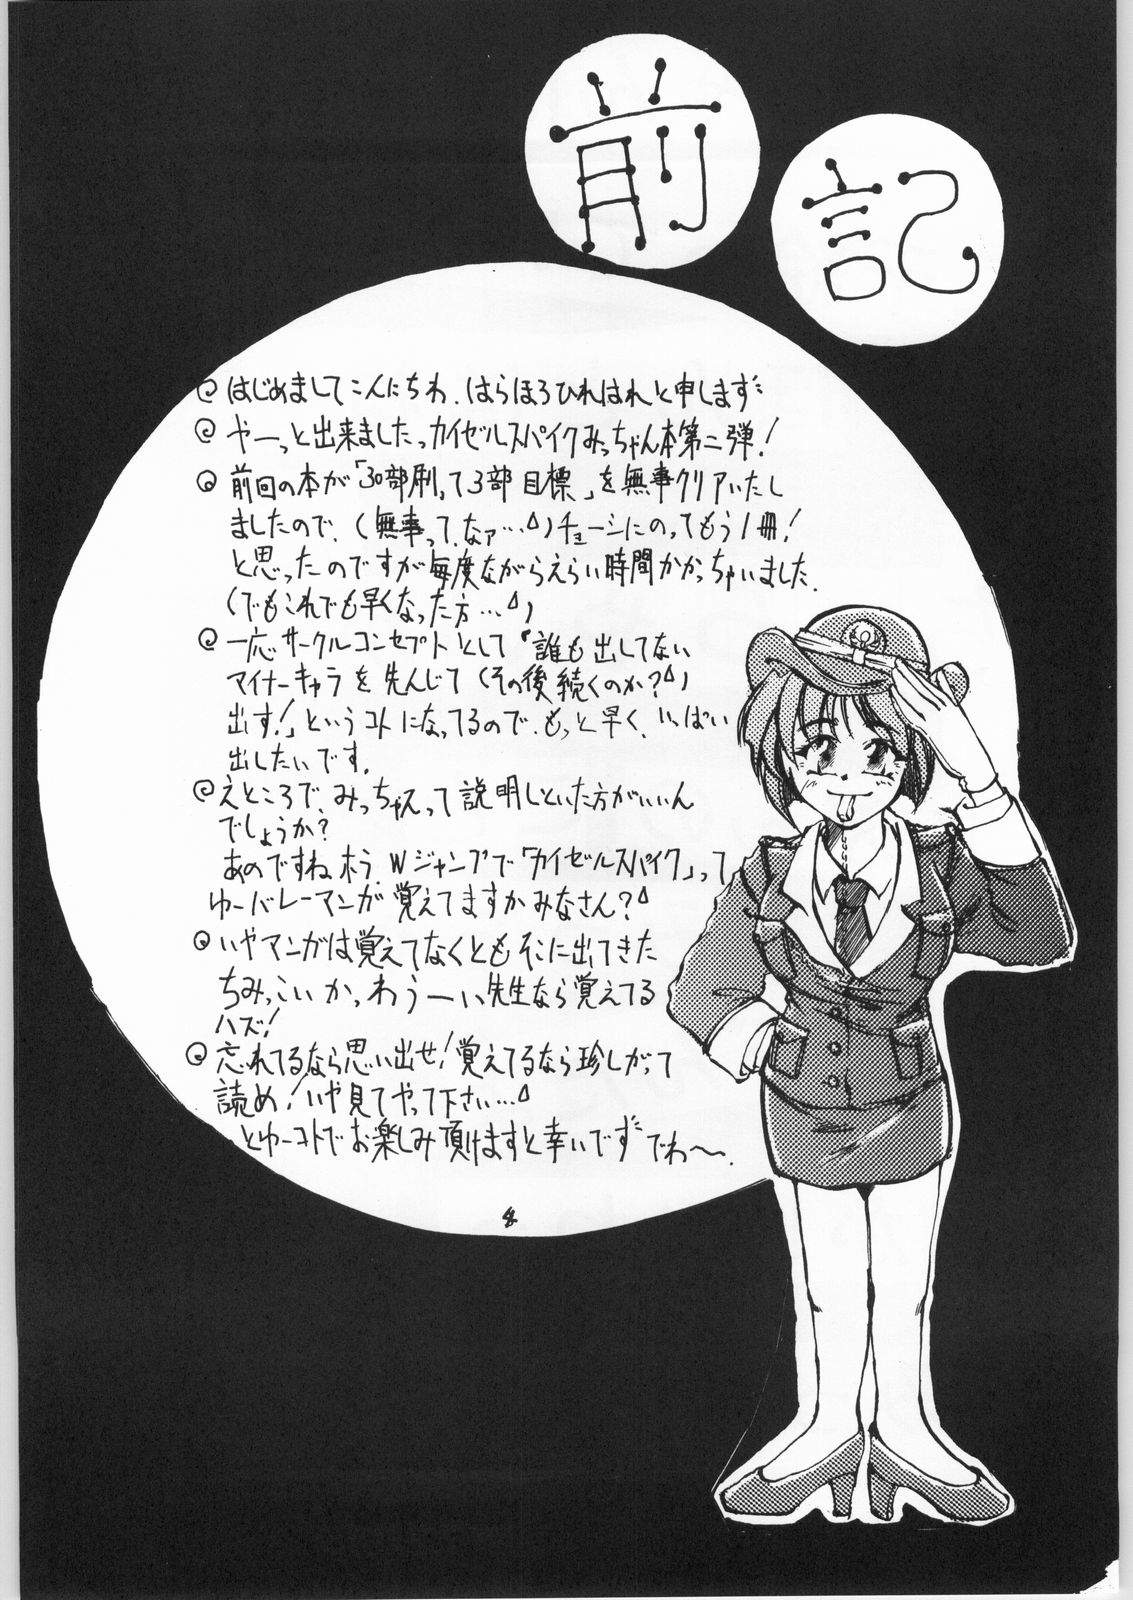 前記
はじめましてこんにちわ.はらほろひれはれと申しますﾞ
やーっと出来ましたっカイゼルスパイクみっちゃん本第二弾!
前回の本が「30部刷って3部目標」を無事クリアいたし
ましたので、(無事って、なァ…)チョーシにのってもう1冊!
と思ったのですが毎度ながらえらい時間かかっちゃいました.
(でもこれでも早くなった方…)
一応サークルコンセプトとして「誰も出してない
マイナーキャラを先んじて(その後続くのか?)
出す!」というコトになってるので、もっと早く、いっぱい
出したいです.
えところで、みっちゃんって説明しといた方がいいん
でしょうか?
あのですね ホラ Wジャンプで「カイゼルスパイク」って
ゆーバレーマンガ覚えてますかみなさん?
いやマンガは覚えてなくともそこに出てきた
ちみっこいかっわうーい先生なら覚えてる
ハズ!
忘れてるなら思い出せ!覚えてるなら珍しがって
読め!いや見てやって下さい…
とゆーコトでお楽しみ頂けますと幸いですﾞでわ〜.
4